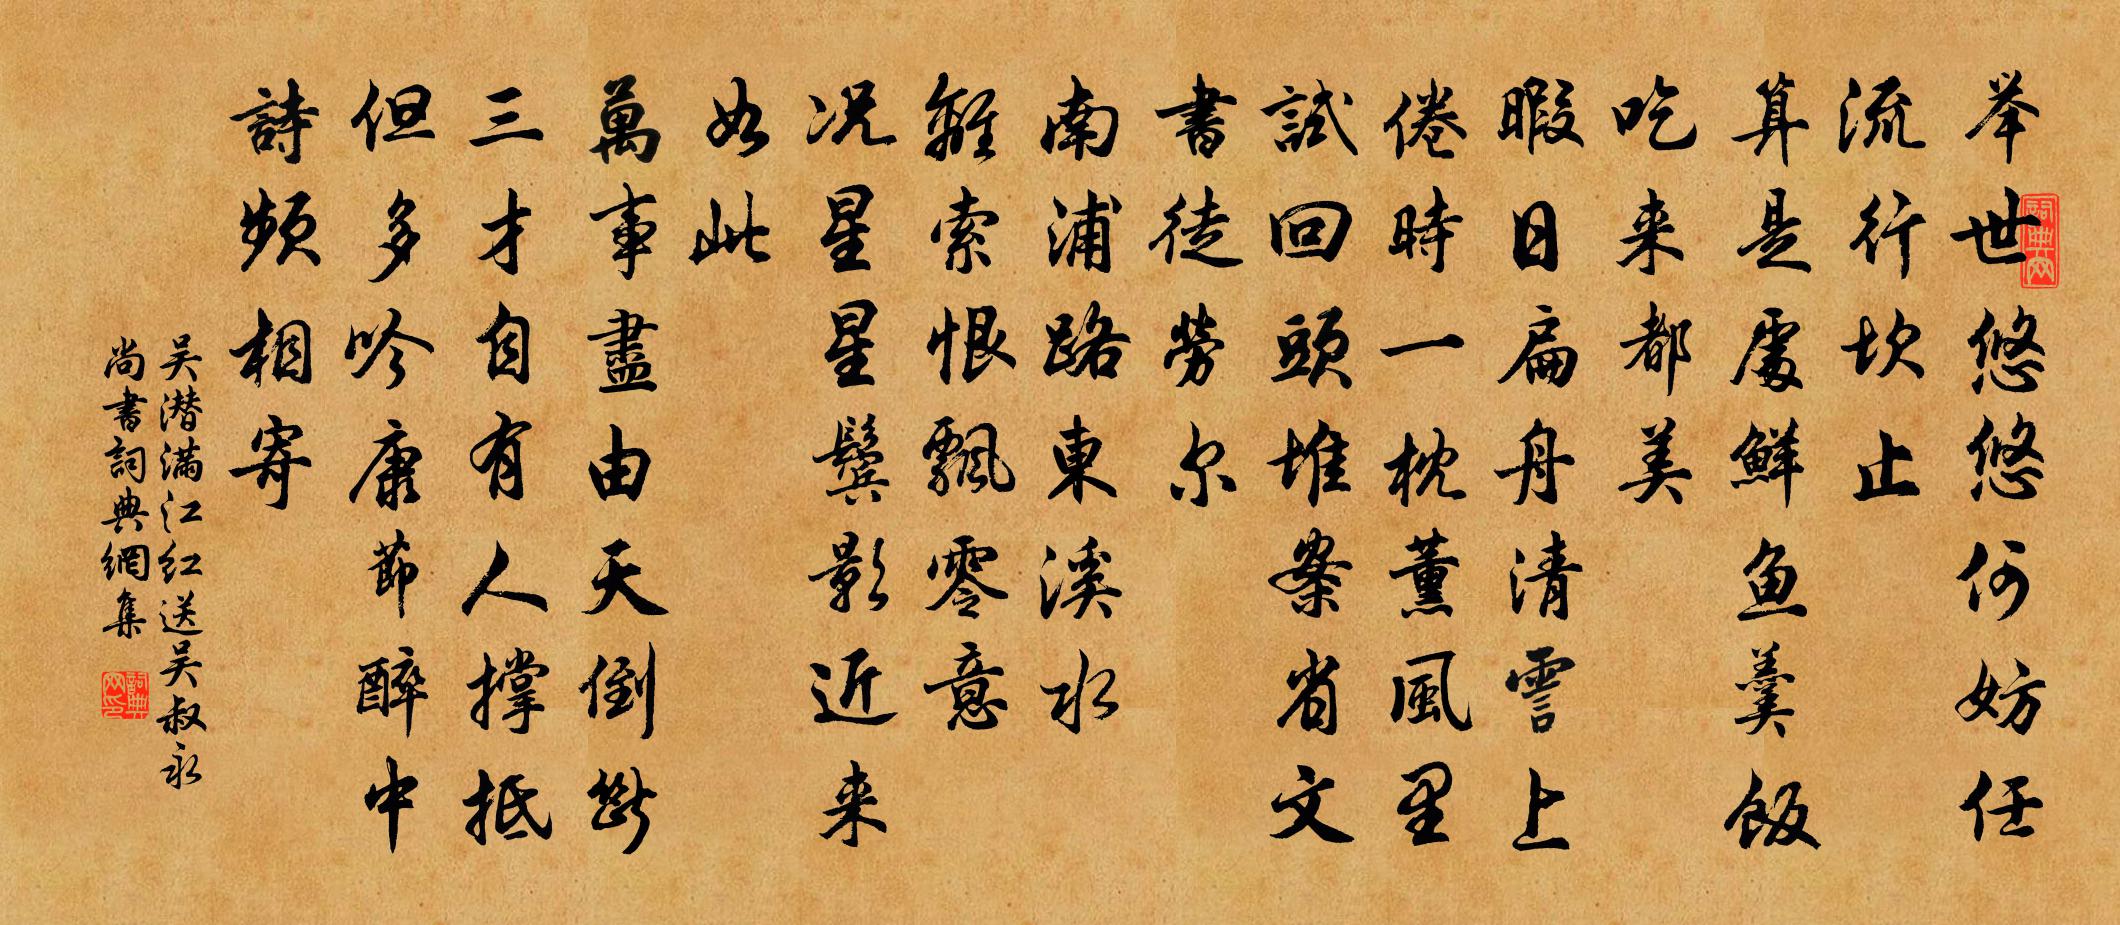 举世悠悠何妨任
流行坎止
算是處鮮魚羹飯
吃来都美
暇日扁舟清霅上
倦時一枕薰風里
試回頭堆案省文
書徒勞尔
南浦路東溪水
離索恨飄零意
况星星鬓影近来
如此
萬事盡由天倒斷
三才自有人撑抵
但多吟康節醉中
詩頻相寄
吴潜满江红送吴叔永
尚書詞典網集
詞典网
詞典网印